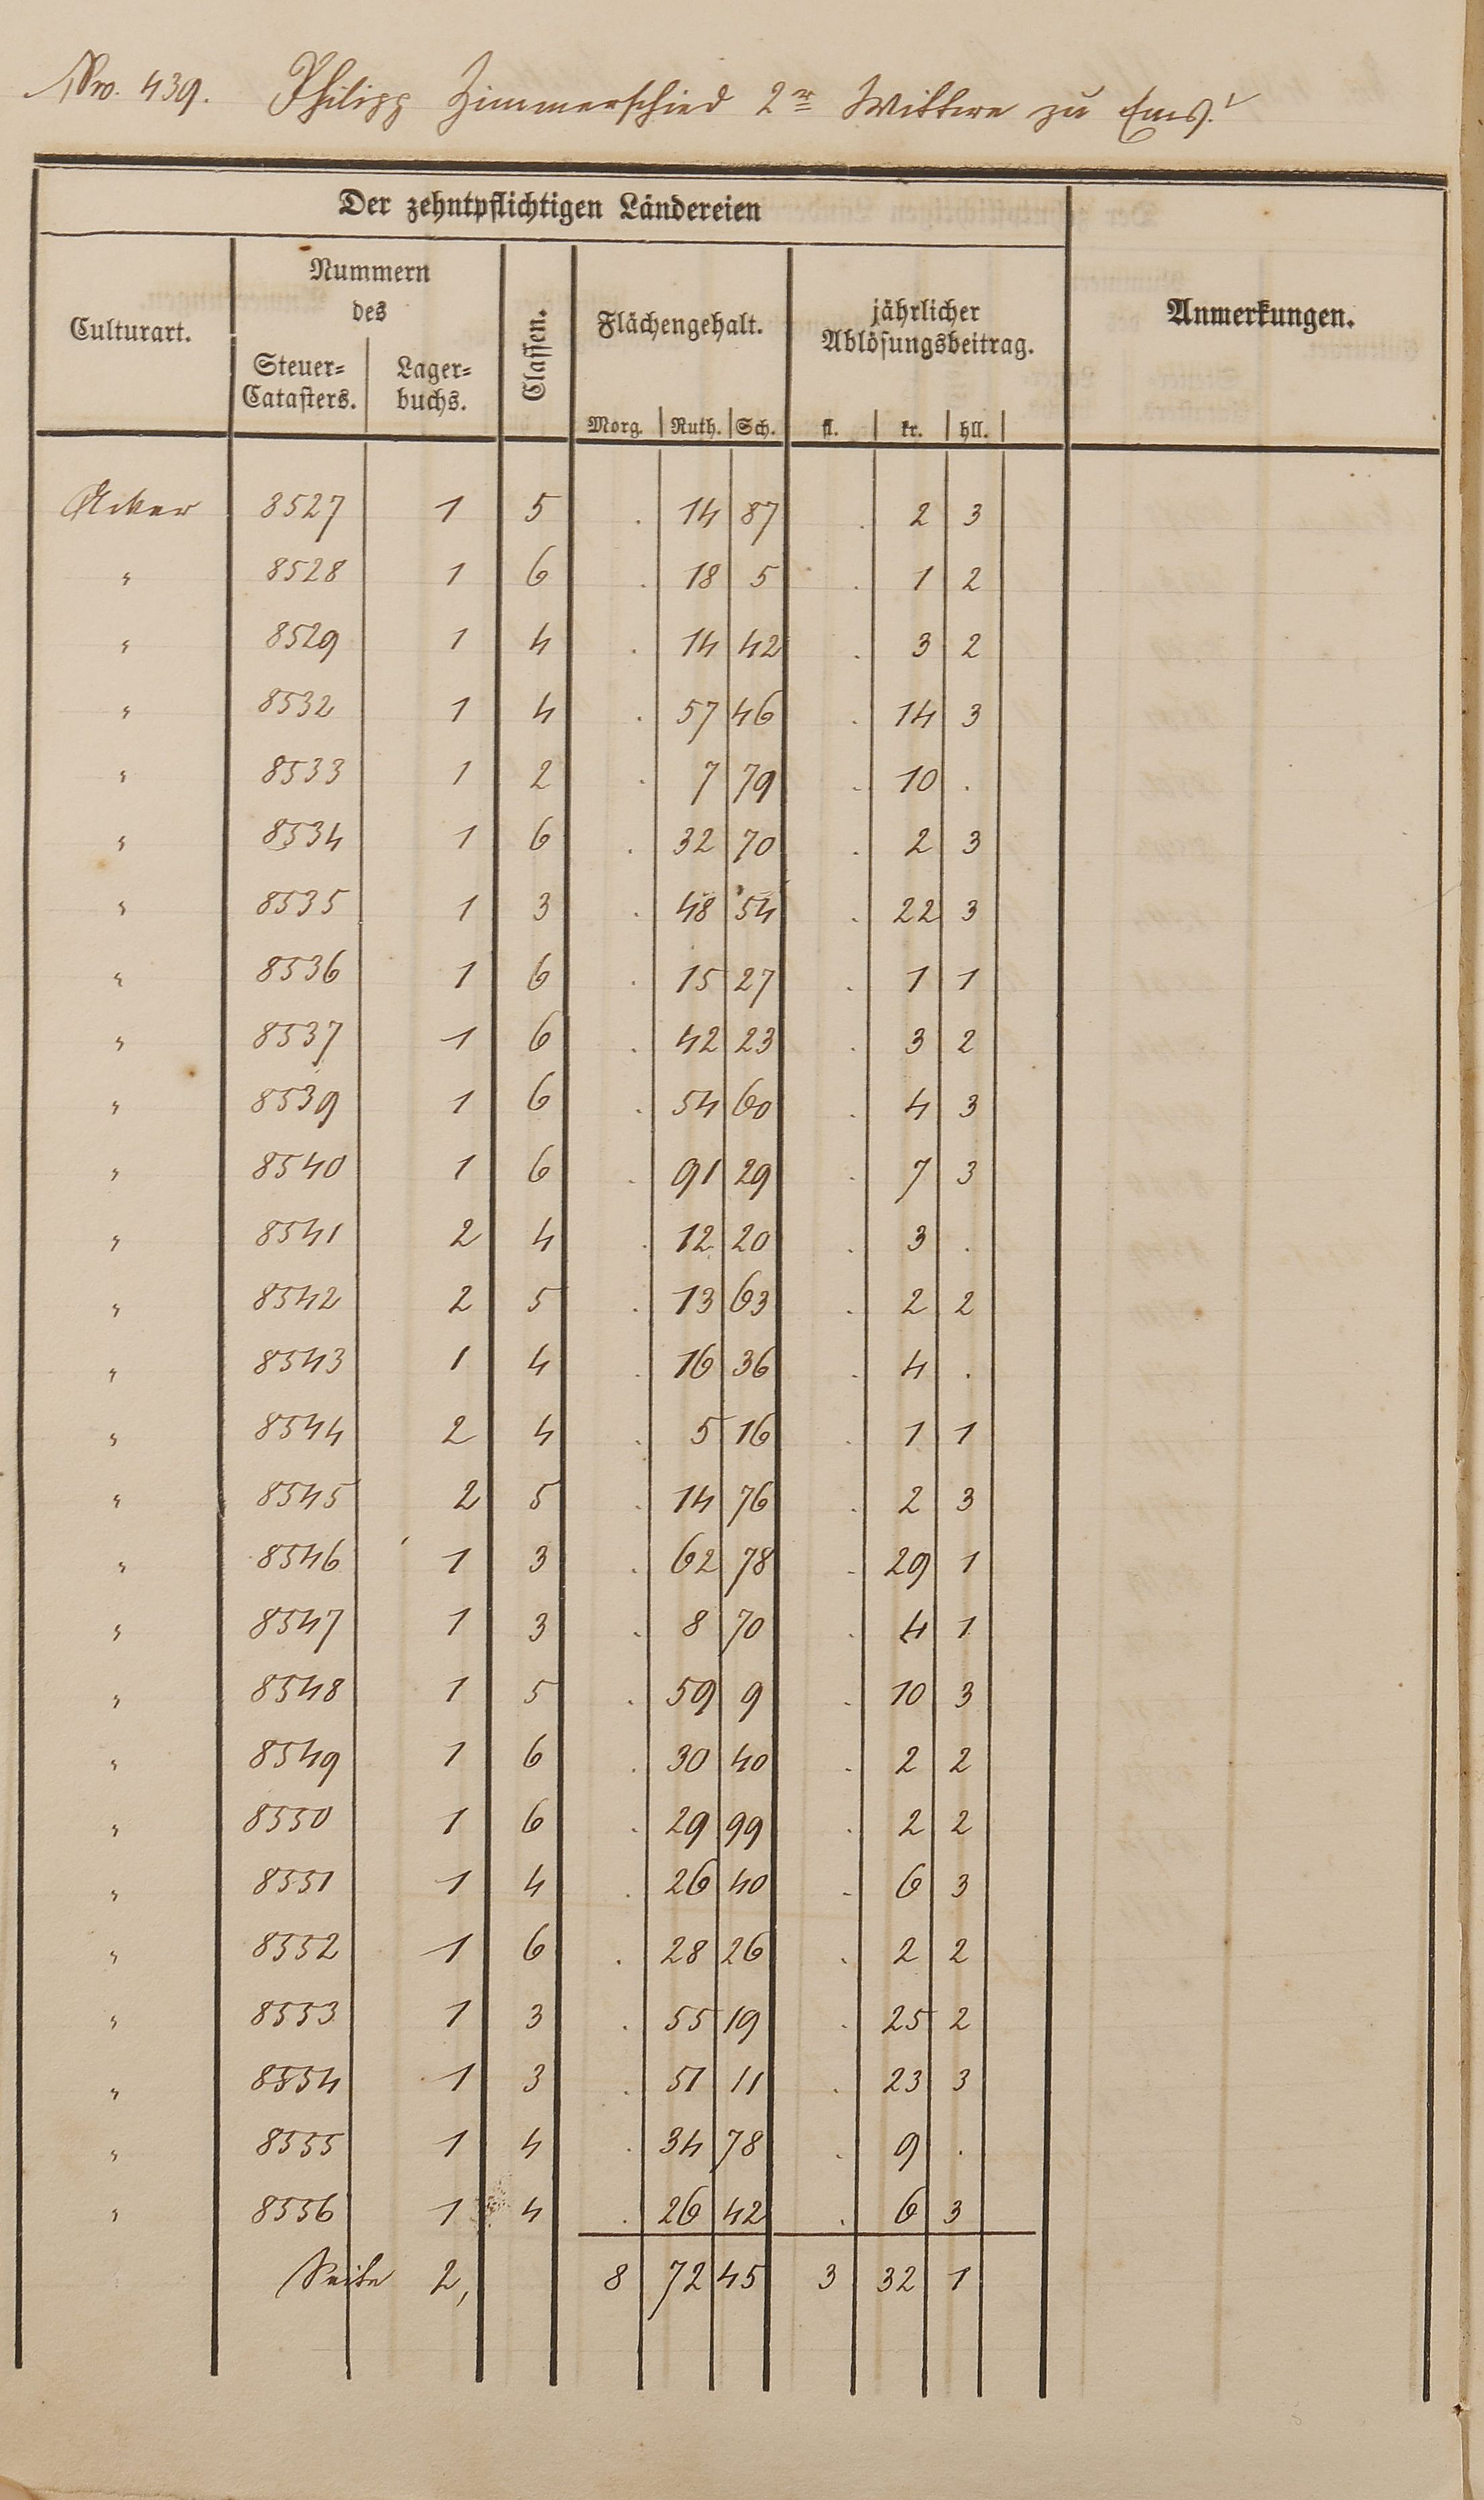 Nro. 439. Philipp Zimmerschied 2r Wittwe zu Ems.
Der zehntpflichtigen Ländereien
Culturart. Nummern des Steuer=Catasters. Lager=buchs. Classen. Flächengehalt. Morg. Ruth. Sch. jährlicher Ablösungsbeitrag. fl. kr. hll. Anmerkungen.
Acker 8527 1 5 . 14 87 . 2 3
" 8528 1 6 . 18 5 . 1 2
" 8529 1 4 . 14 42 . 3 2
" 8532 1 4 . 57 46 . 14 3
" 8533 1 2 . 7 79 . 10 .
" 8534 1 6 . 32 70 . 2 3
" 8535 1 3 . 48 54 . 22 3
" 8536 1 6 . 15 27 . 1 1
" 8537 1 6 . 42 23 . 3 2
" 8539 1 6 . 54 60 . 4 3
" 8540 1 6 . 91 29 . 7 3
" 8541 2 4 . 12 20 . 3 .
" 8542 2 5 . 13 63 . 2 2
" 8543 1 4 . 16 36 . 4 .
" 8544 2 4 . 5 16 . 1 1
" 8545 2 5 . 14 76 . 2 3
" 8546 1 3 . 62 78 . 29 1
" 8547 1 3 . 8 70 . 4 1
" 8548 1 5 . 59 9 . 10 3
" 8549 1 6 . 30 40 . 2 2
" 8550 1 6 . 29 99 . 2 2
" 8551 1 4 . 26 40 . 6 3
" 8552 1 6 . 28 26 . 2 2
" 8553 1 3 . 55 19 . 25 2
" 8554 1 3 . 51 11 . 23 3
" 8555 1 4 . 34 78 . 9 .
" 8556 1 4 . 26 42 . 6 3
Seite 2, 8 72 45 3 32 1